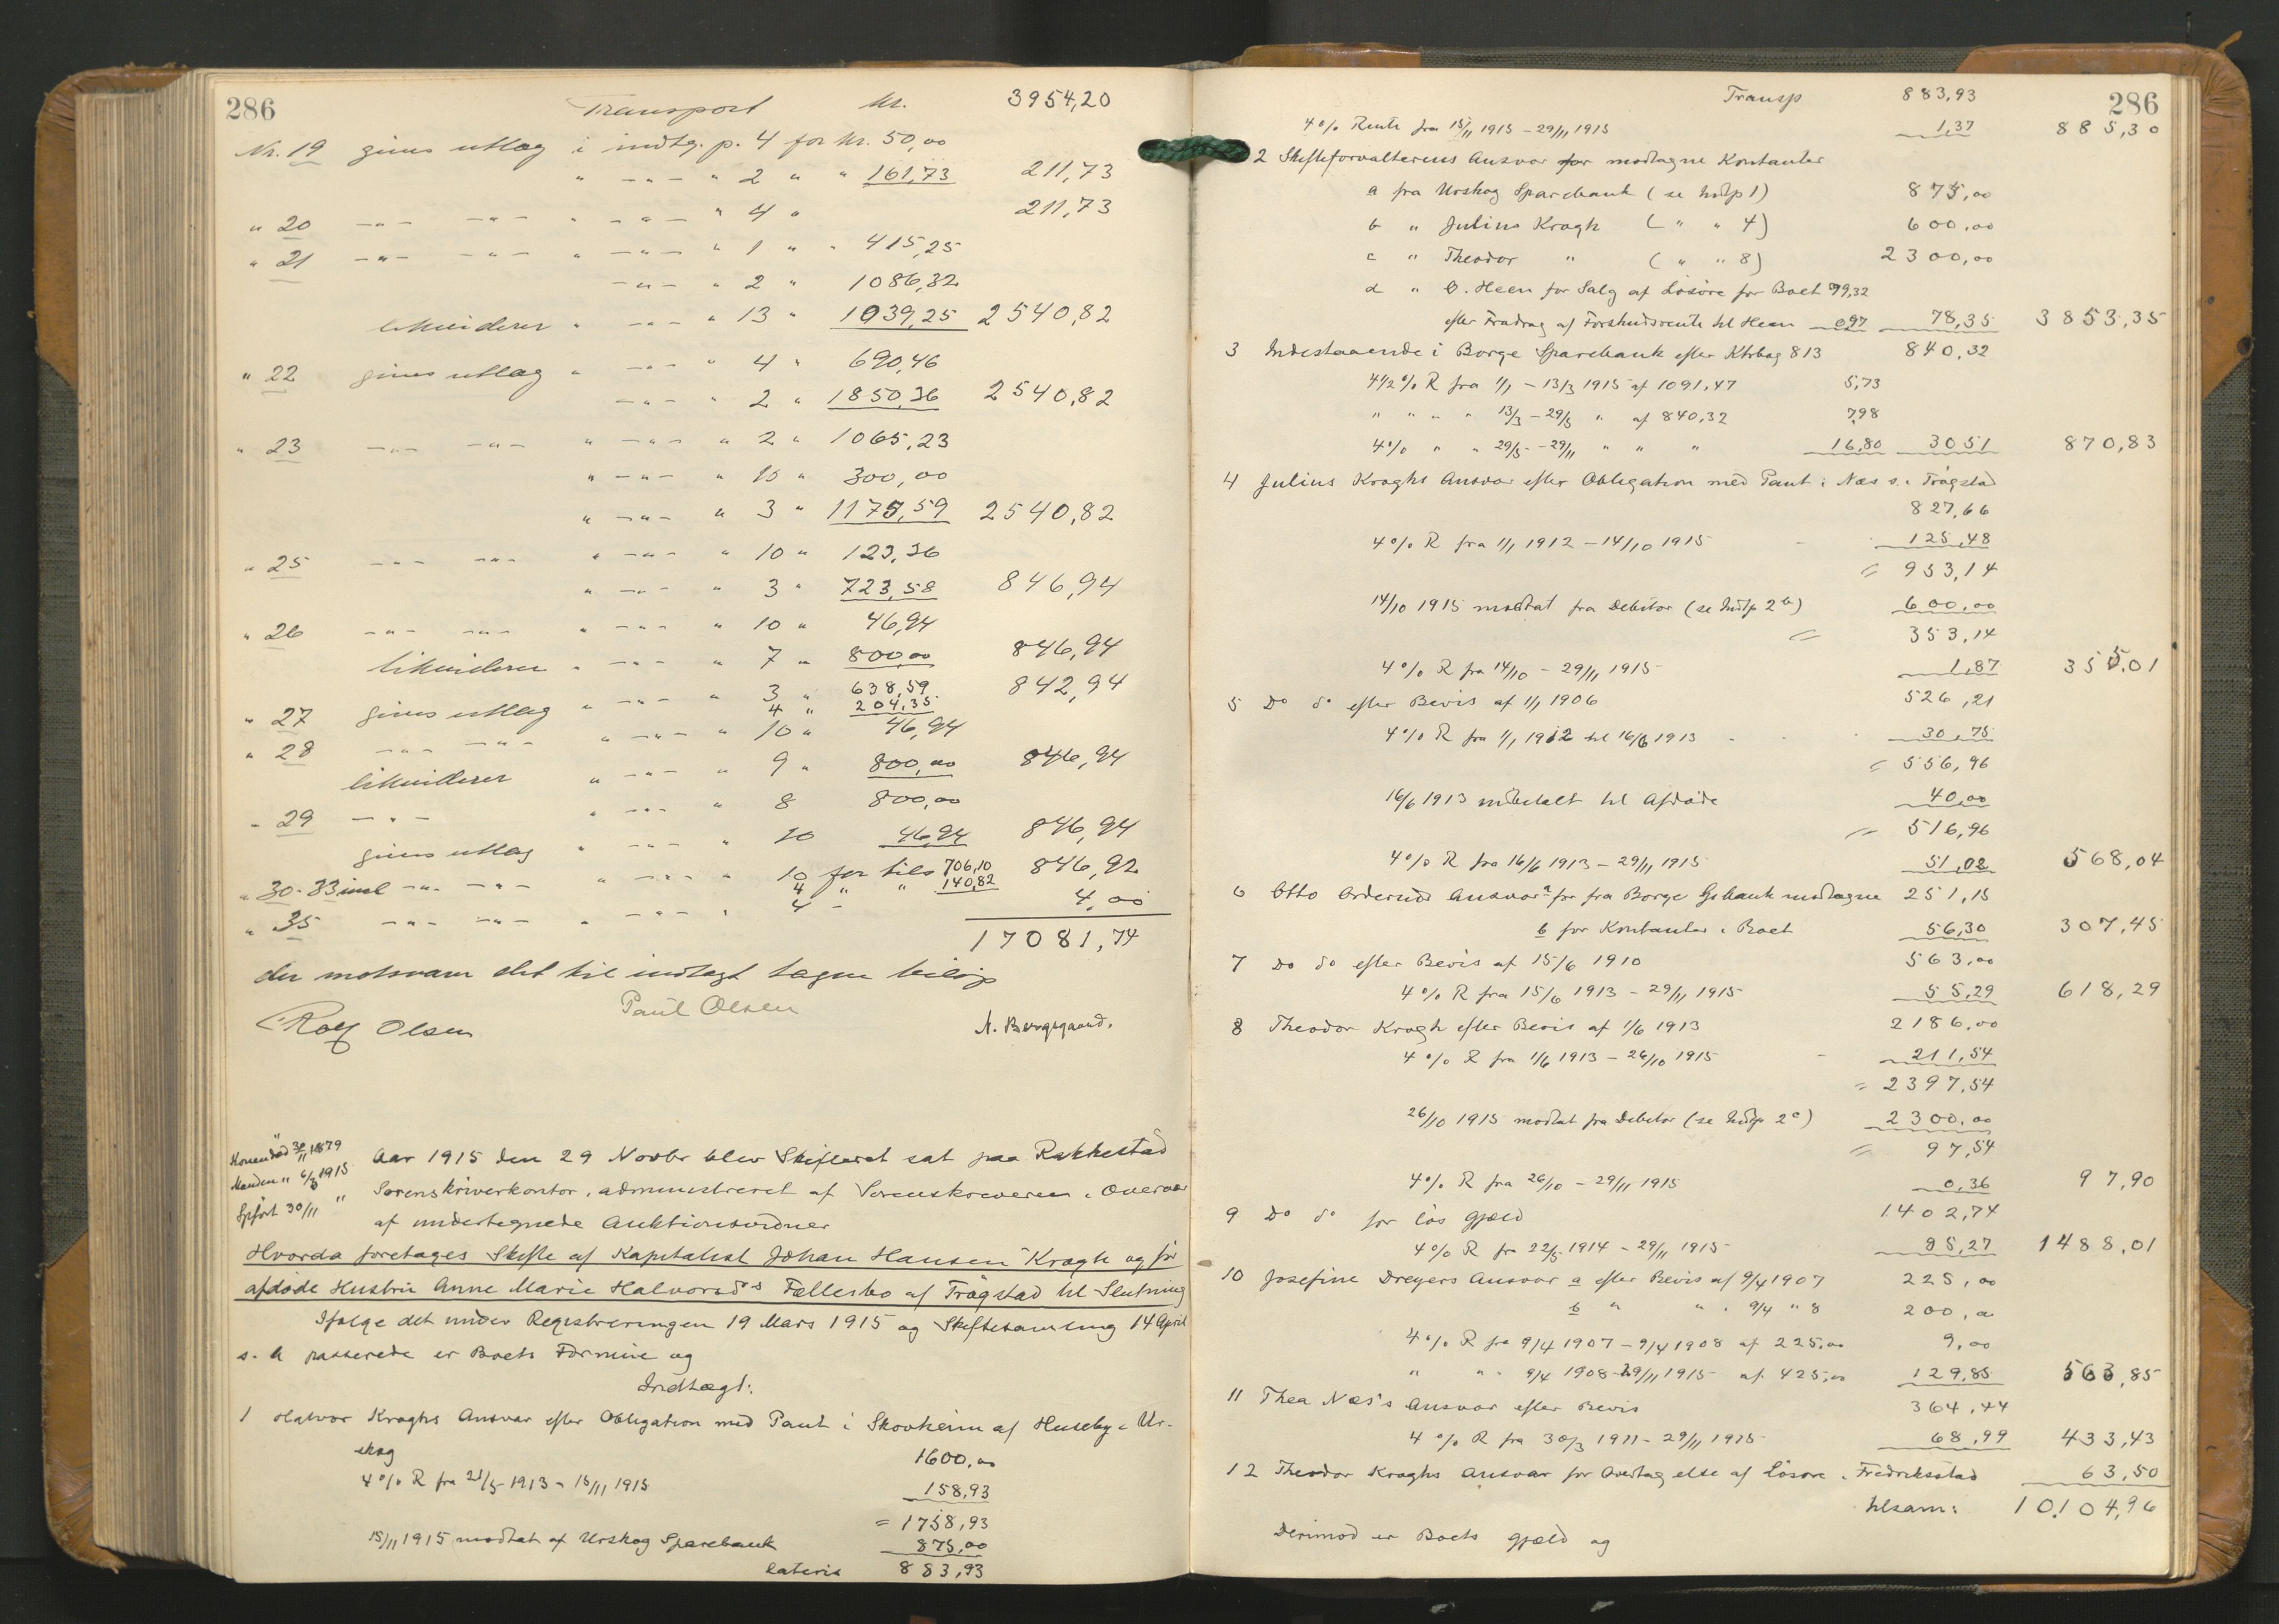 286
Transport Kr. 3954,20
Nr. 19 gives utlæg i indtg. p. 4 for kr. 50,00
" — " — " 2 " " 161,73 211,73
" 20 — " — — " — " — " — " 4 " 211,73
" 21 — " — — " — " — " — " 1 " " 415,25
— " — " 2 " 1086,32
likviderer " — " — " 13 " 1039,25 2540,82
" 22 gives utlæg " — " — " 4 " 690,46
— " — " 2 " 1850,36 2540,82
" 23 — " — — " — " — " — " 2 " 1065,23
" — " — " 15 " 300,00
" — " — " 3 " 1175,59 2540,82
" 25 — " — — " — " — " — " 10 " 123,36
" — " — " 3 " 723,58 846,94
" 26 — " — — " — " — " — " 10 " 46,94
likviderer " — " — " 7 " 800,00 846,94
" 27 gives utlæg " — " — " 3 " 638,59 842,94
4 " 204,35
" 28 — " — — " — " — " — " 10 " 46,94
likviderer " — " — " 9 " 800,00 846,94
" 29 — " — " — " — " 8 800,00
gives utlæg " — " — " 10 46,94 846,94
" 30-33 incl — " — — " — " — " — " 10 for tils 706,10 846,92
4 " " 140,82
" 35 — " — — " — " — " — " 4 — 4,00
17081,74
der motsvarer det til indtægt tagne beløp
Rolf Olsen Paul Olsen A. Bergsgaard.
Konen død 30/11 1879
Manden " 6/3 1915
Spført 30/11 "
Aar 1915 den 29 Novbr blev Skifteret sat paa Rakkestad
Sorenskriverkontor, administreret af Sorenskriveren i Overvær
af undertegnede Auktionsvidner
Hvorda foretages Skifte af Kapitalist Johan Hansen Kragh og før
afdøde Hustru Anne Marie Halvorsd's Fællesbo af Trøgstad til Slutning
Ifølge det under Registreringen 19 Mars 1915 og Skiftesamling 14 April
s. A passerede er Boets Formue og
Indtægt:
1 Halvor Kraghs Ansvar efter Obligation med Pant i Skovheim af Huseby i Ur-
skog 1600,00
4 % R fra 21/5 1913 – 15/11 1915 158,93
= 1758,93
15/11 1915 modtat af Urskog Sparebank 875,00
lateris 883,93
286
Transp 883,93
4 % Rente fra 15/11 1915 – 29/11 1915 1,37 885,30
2 Skifteforvalterens Ansvar for modtagne Kontanter
a fra Urskog Sparebank (se Indtp 1) 875,00
b " Julius Kragh ( " " 4) 600,00
c " Theodor " ( " " 8) 2300,00
d " O. Heen for Salg af Løsøre for Boet 79,32
efter Fradrag af Forskudsrente til Heen 0,97 78,35 3853,35
3 Indestaaende i Borge Sparebank efter Ktrbog 813 840,32
4 1/2 % R fra 1/1 – 13/3 1915 af 1091,47 5,73
" " " " 13/3 – 29/5 " af 840,32 7,98
4 % " " 29/5 – 29/11 " " " 16,80 30,51 870,83
4 Julius Kraghs Ansvar efter Obligation med Pant i Næs s. i Trøgstad
827,66
4 % R fra 1/1 1912 – 14/10 1915 125,48
= 953,14
14/10 1915 modtat fra Debitor (se Indtp 2b) 600,00
= 353,14
4 % R fra 14/10 – 29/11 1915 1,87 355,01
5 Do do efter Bevis af 1/1 1906 526,21
4 % R fra 1/1 1912 til 16/6 1913 30,75
= 556,96
16/6 1913 indbetalt til Afdøde 40,00
= 516,96
4 % R fra 16/6 1913 – 29/11 1915 51,08 568,04
6 Otto Orderuds Ansvar a for fra Borge Spbank modtagne 251,15
b for Kontanter i Boet 56,30 307,45
7 Do do efter Bevis af 15/6 1910 563,00
4 % R fra 15/6 1913 – 29/11 1915 55,29 618,29
8 Theodor Kragh efter Bevis af 1/6 1913 2186,00
4 % R fra 1/6 1913 – 26/10 1915 211,54
= 2397,54
26/10 1915 modtat fra Debitor (se Indtp 2c) 2300,00
= 97,54
4 % R fra 26/10 – 29/11 1915 0,36 97,90
9 Do do for løs Gjæld 1402,74
4 % R fr 22/5 1914 – 29/11 1915 85,27 1488,01
10 Josefine Dreyers Ansvar a efter Bevis af 9/4 1907 225,00
b " " " 9/4 " 8 200,00
4 % R fra 9/4 1907 – 9/4 1908 af 225,00 9,00
" " " 9/4 1908 – 29/11 1915 af 425,00 129,85 563,85
11 Thea Næs's Ansvar efter Bevis 364,44
4 % R fra 30/3 1911 – 29/11 1915 68,99 433,43
12 Theodor Kraghs Ansvar for Overtagelse af Løsøre i Fredriksstad 63,50
tilsam: 10104,96
Derimod er Boets Gjæld og